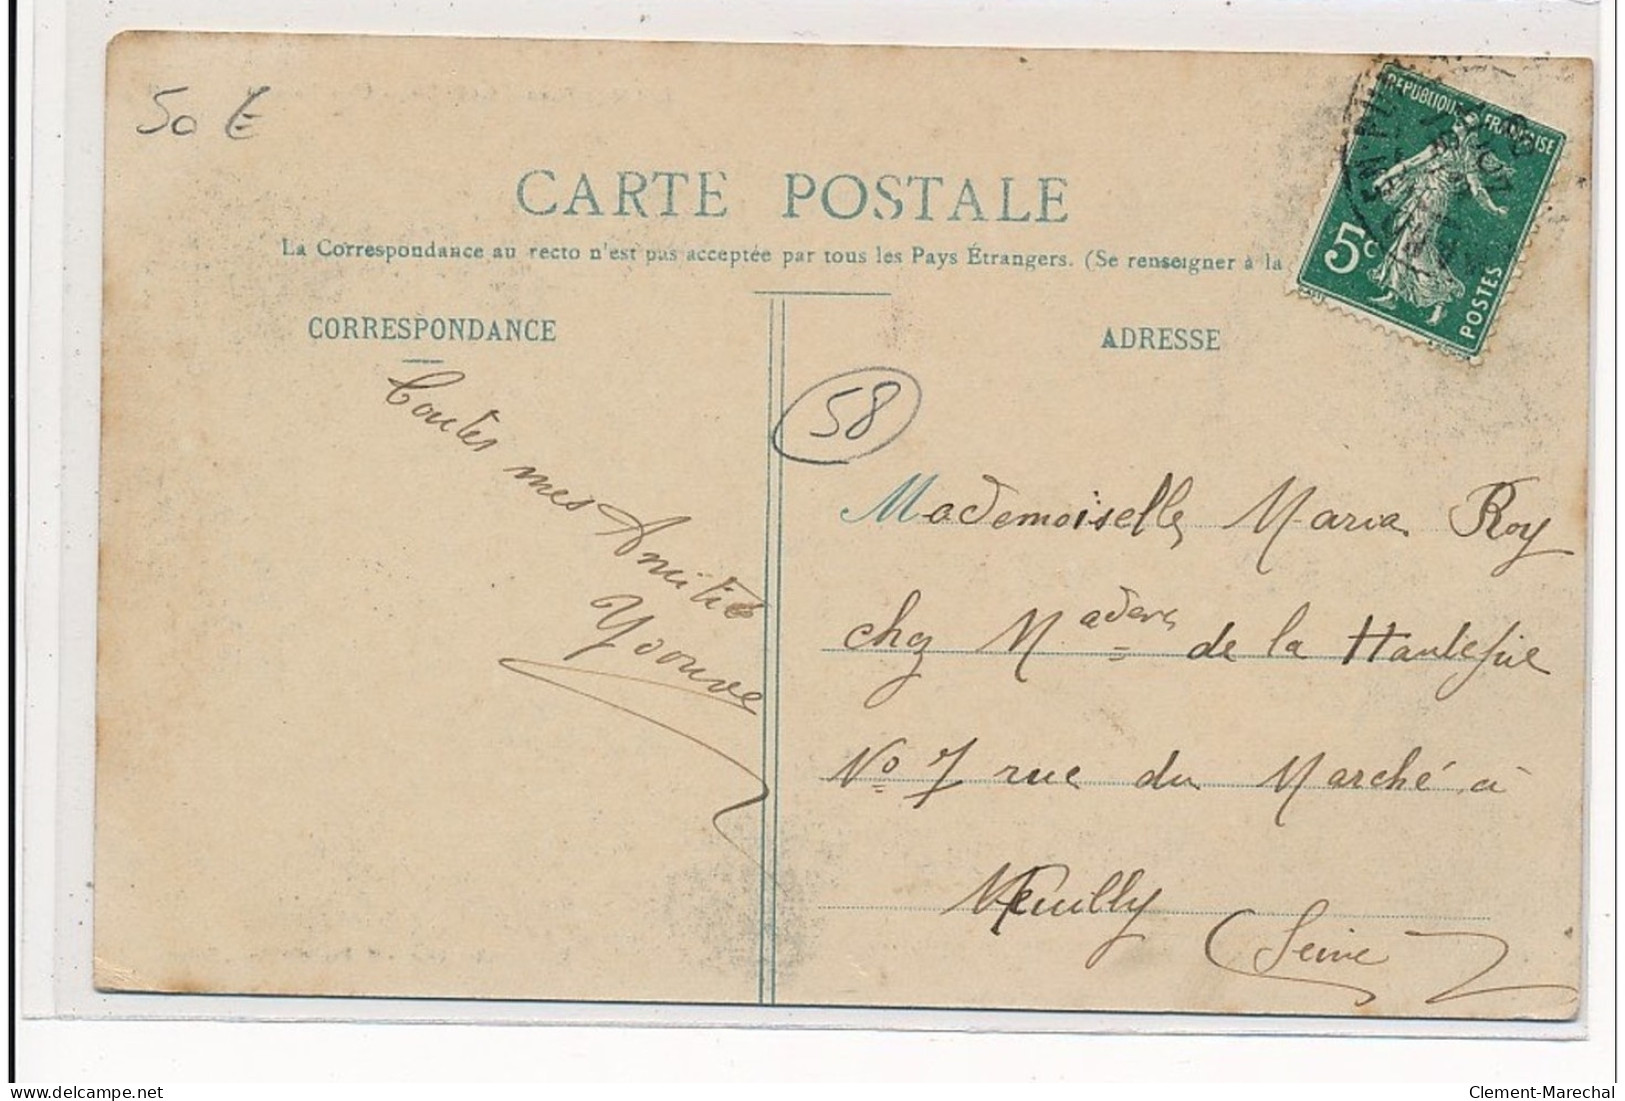 50 €
CARTE POSTALE
La Correspondance au recto n'est pas acceptée par tous les Pays Étrangers. (Se renseigner à la
REPUBLIQUE FRANÇAISE
5c
POSTES
CORRESPONDANCE
ADRESSE
58
Toutes mes Amitiés
Yvonne
Mademoiselle Maria Roy
chez Madame de la Hautefuie
No 7 rue du Marché à
Neuilly
(Seine)
Clement-Marechal